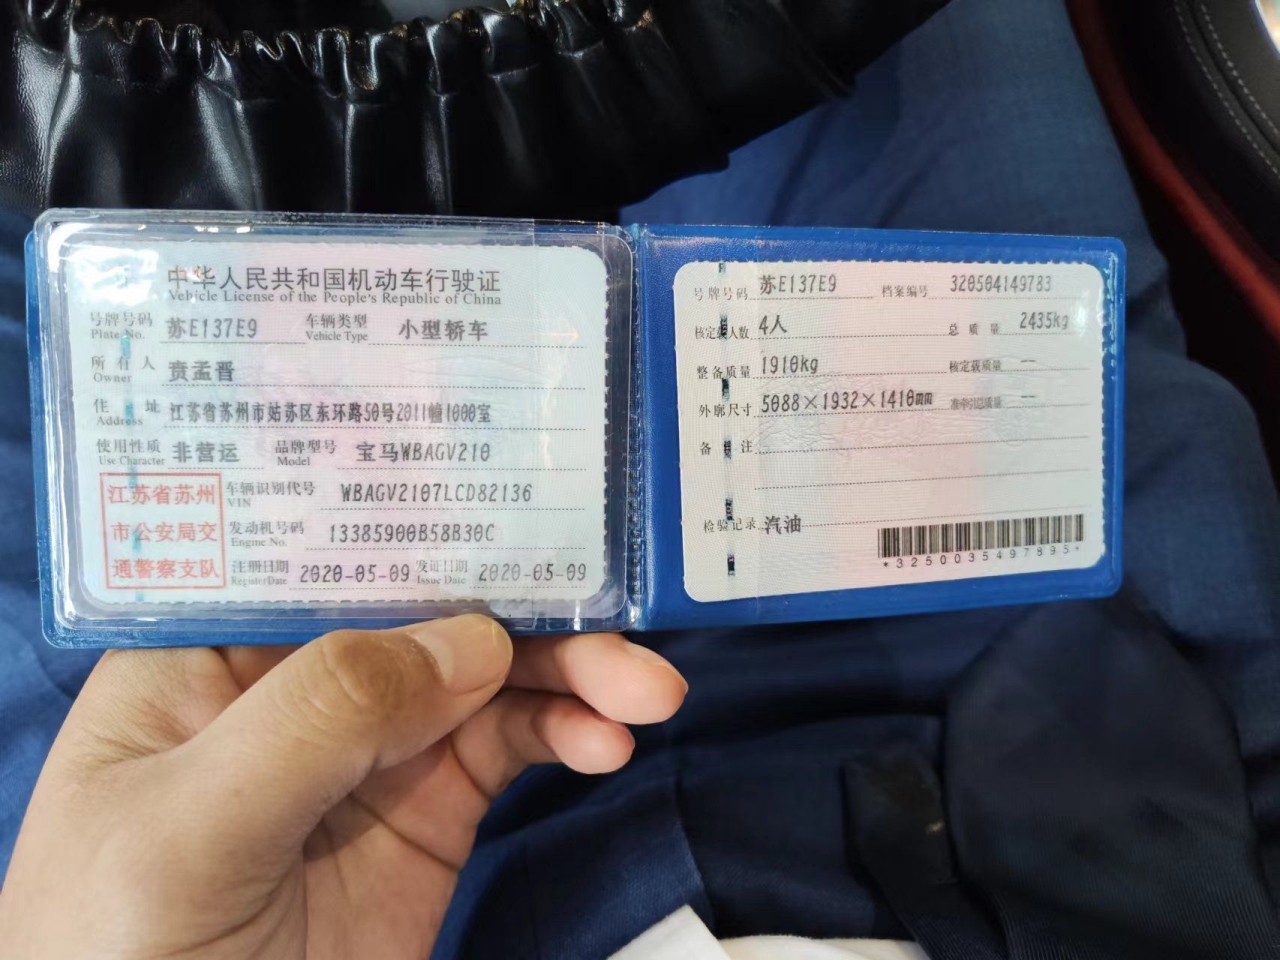 中华人民共和国机动车行驶证
Vehicle License of the People's Republic of China
号牌号码 苏E137E9 车辆类型 小型轿车
Plate No. Vehicle Type
所有人 贲孟晋
Owner
住址 江苏省苏州市姑苏区东环路50号2011幢1000室
Address
使用性质 非营运 品牌型号 宝马WBAGV210
Use Character Model
江苏省苏州
市公安局交
通警察支队
车辆识别代号 WBAGV2107LCD82136
VIN
发动机号码 13385900B58B30C
Engine No.
注册日期 2020-05-09 发证日期 2020-05-09
Register Date Issue Date
号牌号码 苏E137E9 档案编号 320504149783
核定载人数 4人 总质量 2435kg
整备质量 1910kg 核定载质量 --
外廓尺寸 5088×1932×1410mm 准牵引总质量 --
备注
检验记录 汽油
*3250035497895*